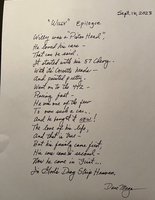 Sept. 16, 2023
"Willy" Epilogue
Willy was a "Poler Head",
He loved his cars -
That can be said.
It started with his 57 Chevy -
With its Corvette heads -
And painted pretty.
Went on to the 442 -
Racing fast -
He was one of the few
To own such a car,
And he bought it NEW!
The love of his life,
And that is true -
But his family came first,
His cars came in second.
Now he comes in "First"...
In God's Drag Strip Heaven.
Dave